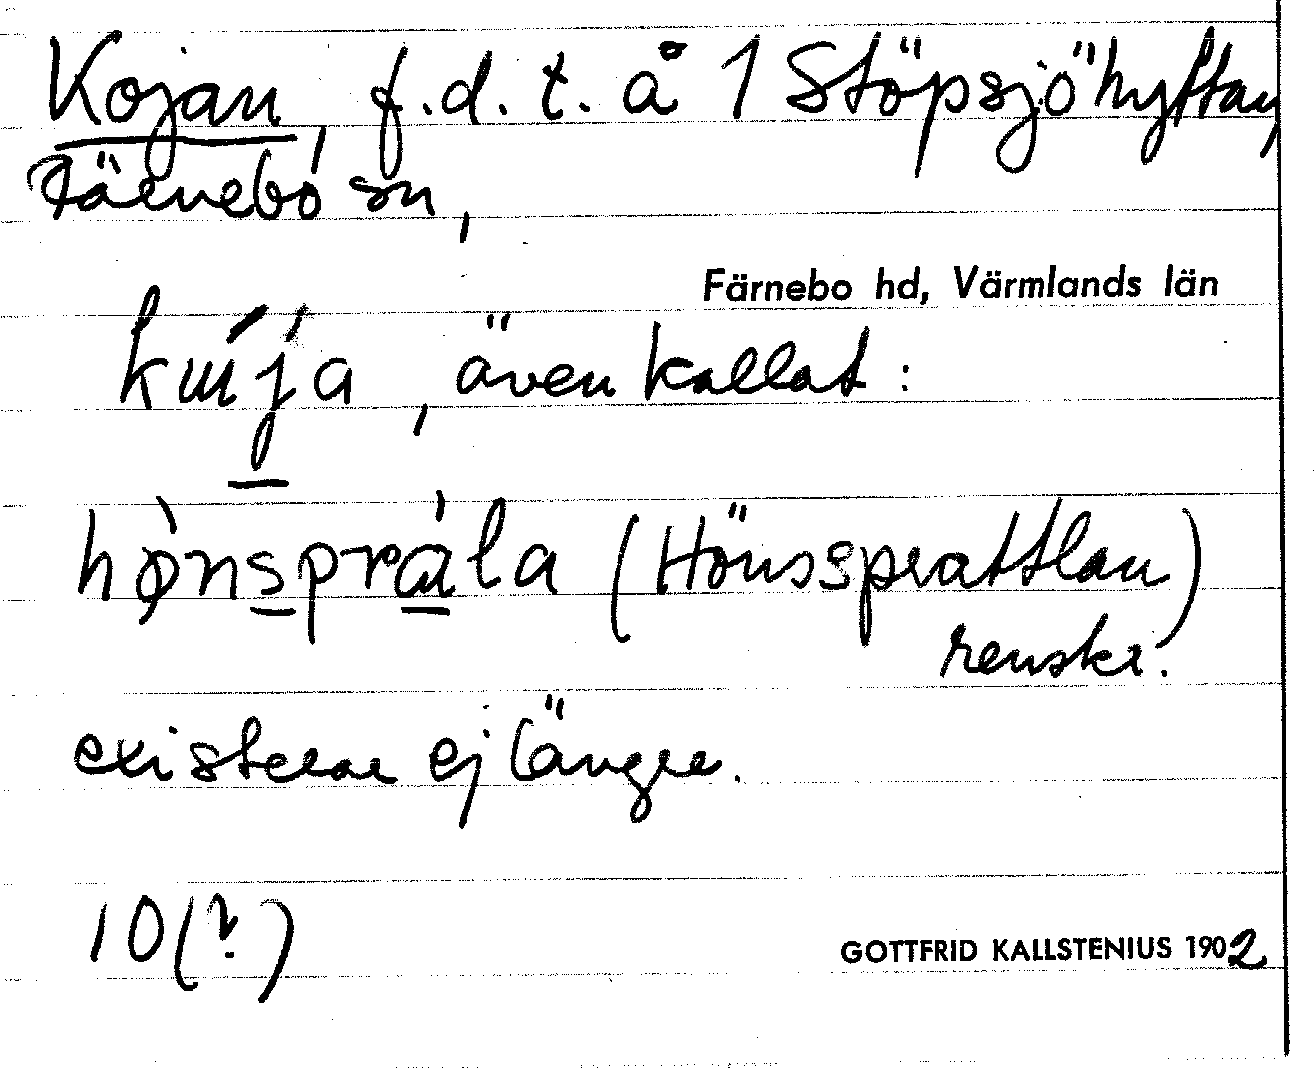 Kojan, f.d. t. å 1 Stöpsjöhyttan,
Färnebo sn,
Färnebo hd, Värmlands län
, även kallat:
hø̀nspràla (Hönssprattlan)
renskr.
existerar ej längre.
10(?)
GOTTFRID KALLSTENIUS 1902